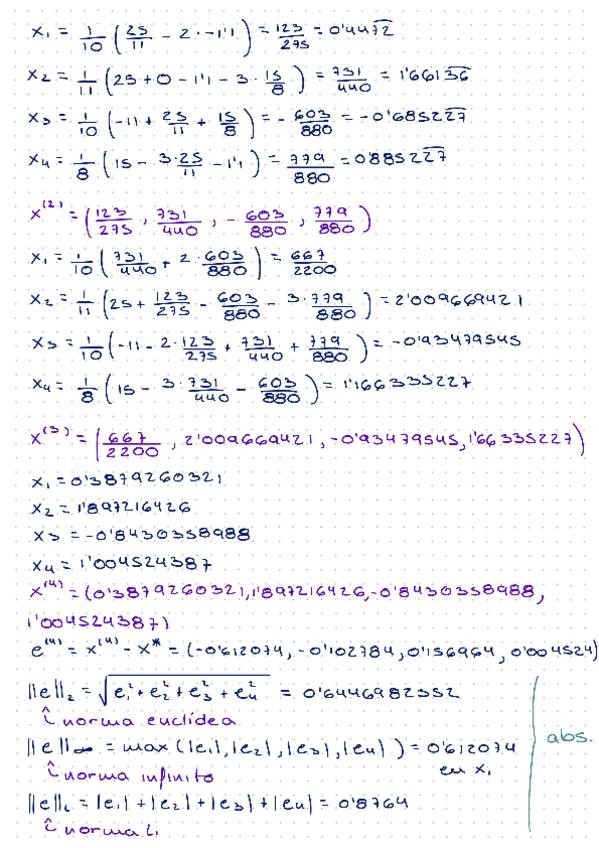 x₁ = 1/10 (25/11 - 2 · -1'1) = 123/275 = 0'4472
x₂ = 1/11 (25 + 0 - 1'1 - 3 · 15/8) = 731/440 = 1'66136
x₃ = 1/10 (-11 + 25/11 + 15/8) = - 603/880 = -0'685227
x₄ = 1/8 (15 - 3·25/11 - 1'1) = 779/880 = 0'885227
x⁽²⁾ = (123/275, 731/440, - 603/880, 779/880)
x₁ = 1/10 (731/440 + 2 · 603/880) = 667/2200
x₂ = 1/11 (25 + 123/275 - 603/880 - 3 · 779/880) = 2'009669421
x₃ = 1/10 (-11 - 2 · 123/275 + 731/440 + 779/880) = -0'93479545
x₄ = 1/8 (15 - 3 · 731/440 - 603/880) = 1'166335227
x⁽³⁾ = (667/2200, 2'009669421, -0'93479545, 1'66335227)
x₁ = 0'3879260321
x₂ = 1'897216426
x₃ = -0'8430358988
x₄ = 1'004524387
x⁽⁴⁾ = (0'3879260321, 1'897216426, -0'8430358988,
1'004524387)
e⁽⁴⁾ = x⁽⁴⁾ - x* = (-0'612074, -0'102784, 0'156964, 0'004524)
||e||₂ = √(e₁² + e₂² + e₃² + e₄²) = 0'6446982352
norma euclídea
||e||∞ = max (|e₁|, |e₂|, |e₃|, |e₄|) = 0'612074
en x₁
norma infinito
abs.
||e||₁ = |e₁| + |e₂| + |e₃| + |e₄| = 0'8764
norma L₁